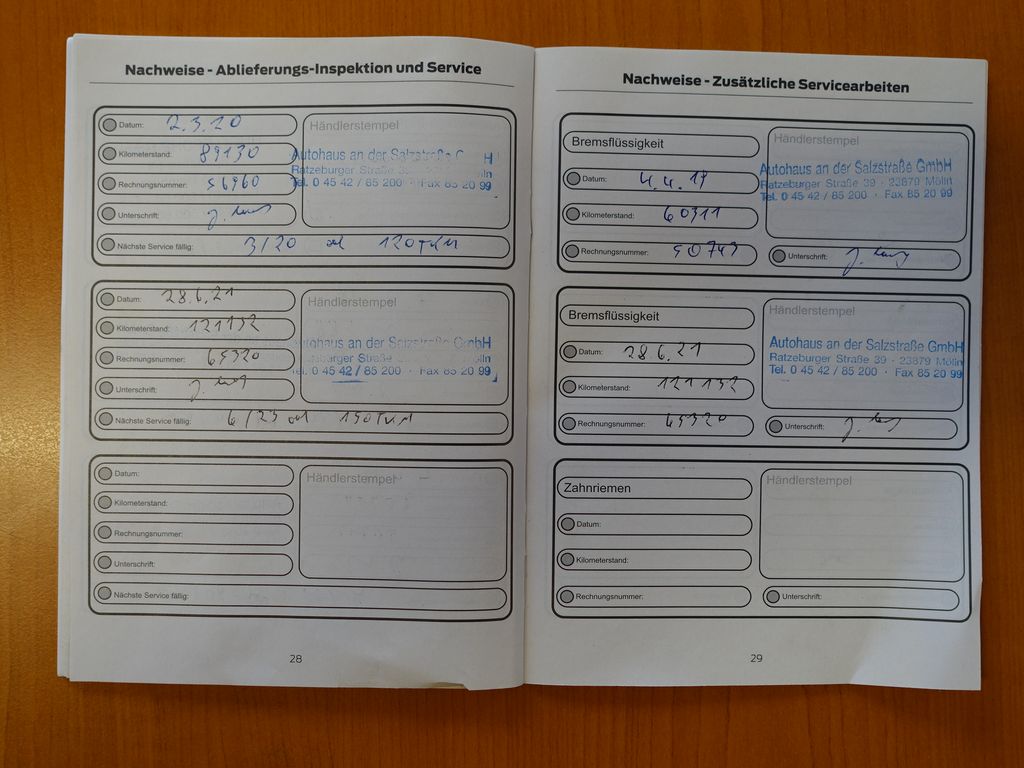 Nachweise - Ablieferungs-Inspektion und Service
Datum: 2.3.20
Händlerstempel
Kilometerstand: 89130
Autohaus an der Salzstraße G H
Ratzeburger Straße 3 lln
Rechnungsnummer: 56960
Tel. 0 45 42 / 85 200 · Fax 85 20 99
Unterschrift:
Nächste Service fällig: 3/20 od 120TKM
Datum: 28.6.21
Händlerstempel
Kilometerstand: 121132
Autohaus an der Salzstraße GmbH
Rechnungsnummer: 65320
Tel. 0 45 42 / 85 200 · Fax 85 20 99
Unterschrift:
Nächste Service fällig: 6/23 od 150TKM
Datum:
Händlerstempel
Kilometerstand:
Rechnungsnummer:
Unterschrift:
Nächste Service fällig:
28
Nachweise - Zusätzliche Servicearbeiten
Bremsflüssigkeit
Händlerstempel
Autohaus an der Salzstraße GmbH
Ratzeburger Straße 39 · 23879 Mölln
Tel. 0 45 42 / 85 200 · Fax 85 20 99
Datum: 4.4.19
Kilometerstand: 60311
Rechnungsnummer: 50743
Unterschrift:
Bremsflüssigkeit
Händlerstempel
Autohaus an der Salzstraße GmbH
Ratzeburger Straße 39 · 23879 Mölln
Tel. 0 45 42 / 85 200 · Fax 85 20 99
Datum: 28.6.21
Kilometerstand: 121132
Rechnungsnummer: 65320
Unterschrift:
Zahnriemen
Händlerstempel
Datum:
Kilometerstand:
Rechnungsnummer:
Unterschrift:
29